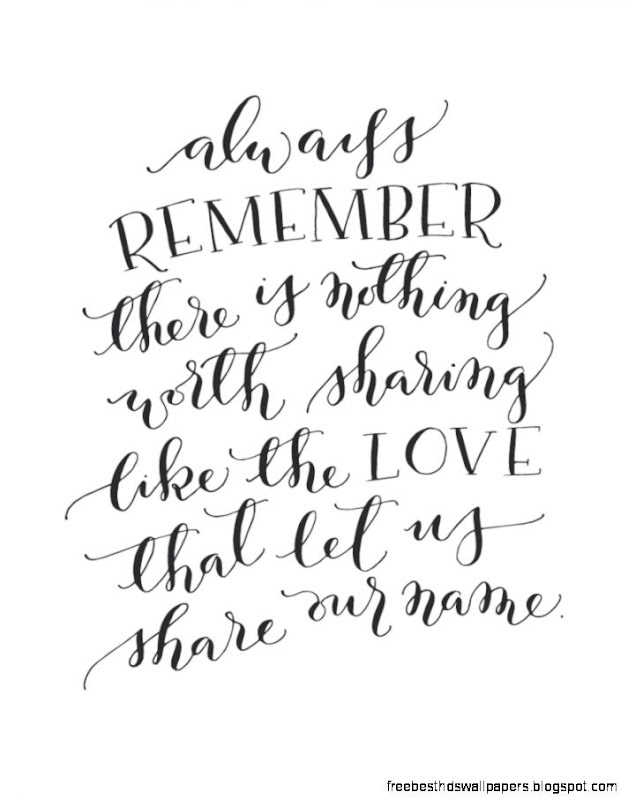 always
REMEMBER
there is nothing
worth sharing
like the LOVE
that let us
share our name.
freebesthdswallpapers.blogspot.com